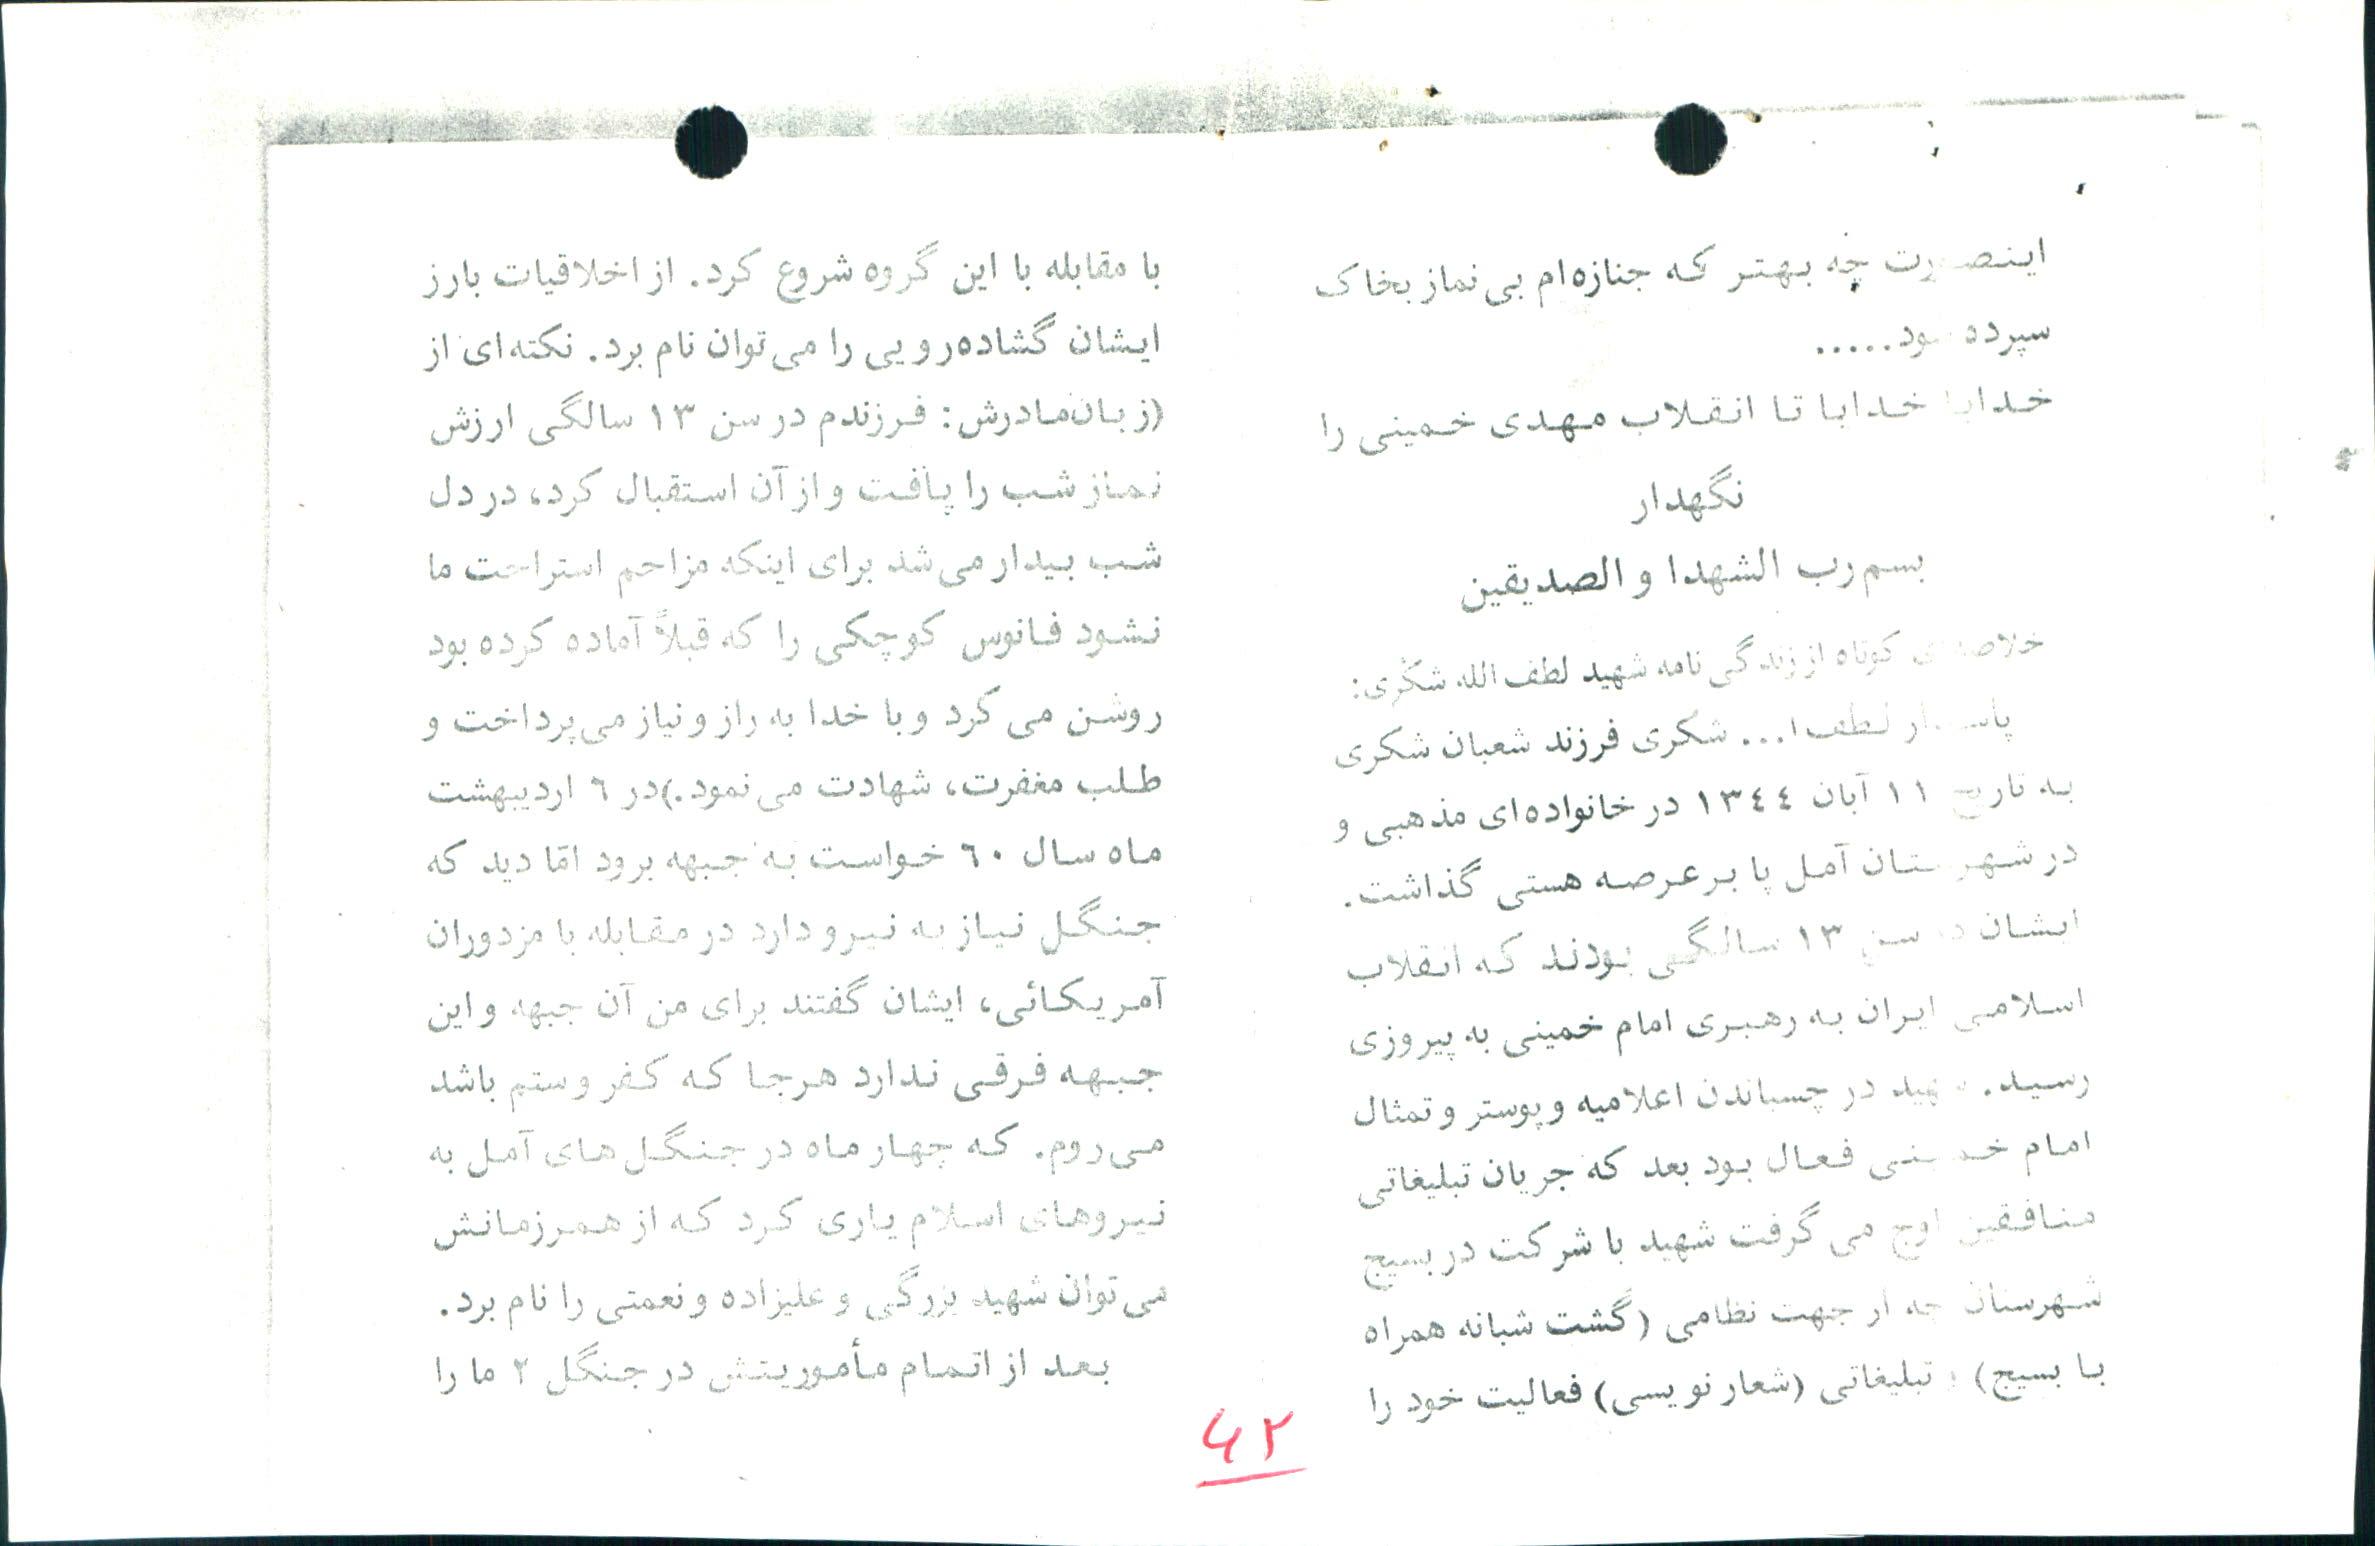 اینصورت چه بهتر که جنازه‌ام بی نماز بخاک
سپرده شود.....
خدایا خدایا تا انقلاب مهدی خمینی را
نگهدار
بسم رب الشهدا و الصدیقین
خلاصه‌ی کوتاه از زندگی نامه شهید لطف الله شکری:
پاسدار لطف ا... شکری فرزند شعبان شکری
به تاریخ ۱۱ آبان ۱۳٤٤ در خانواده‌ای مذهبی و
در شهرستان آمل پا بر عرصه هستی گذاشت.
ایشان در سن ۱۳ سالگی بودند که انقلاب
اسلامی ایران به رهبری امام خمینی به پیروزی
رسید. شهید در چسباندن اعلامیه و پوستر و تمثال
امام خمینی فعال بود بعد که جریان تبلیغاتی
منافقین اوج می گرفت شهید با شرکت در بسیج
شهرستان چه از جهت نظامی (گشت شبانه همراه
با بسیج) و تبلیغاتی (شعار نویسی) فعالیت خود را
با مقابله با این گروه شروع کرد. از اخلاقیات بارز
ایشان گشاده‌رویی را می‌توان نام برد. نکته‌ای از
(زبان مادرش: فرزندم در سن ۱۳ سالگی ارزش
نماز شب را یافت و از آن استقبال کرد، در دل
شب بیدار می‌شد برای اینکه مزاحم استراحت ما
نشود فانوس کوچکی را که قبلاً آماده کرده بود
روشن می کرد و با خدا به راز و نیاز می‌پرداخت و
طلب مغفرت، شهادت می‌نمود.) در ٦ اردیبهشت
ماه سال ٦۰ خواست به جبهه برود امّا دید که
جنگل نیاز به نیرو دارد در مقابله با مزدوران
آمریکائی، ایشان گفتند برای من آن جبهه و این
جبهه فرقی ندارد هرجا که کفر و ستم باشد
می‌روم. که چهار ماه در جنگل های آمل به
نیروهای اسلام یاری کرد که از همرزمانش
می‌توان شهید بزرگی و علیزاده و نعمتی را نام برد.
بعد از اتمام مأموریتش در جنگل ۲ ما را